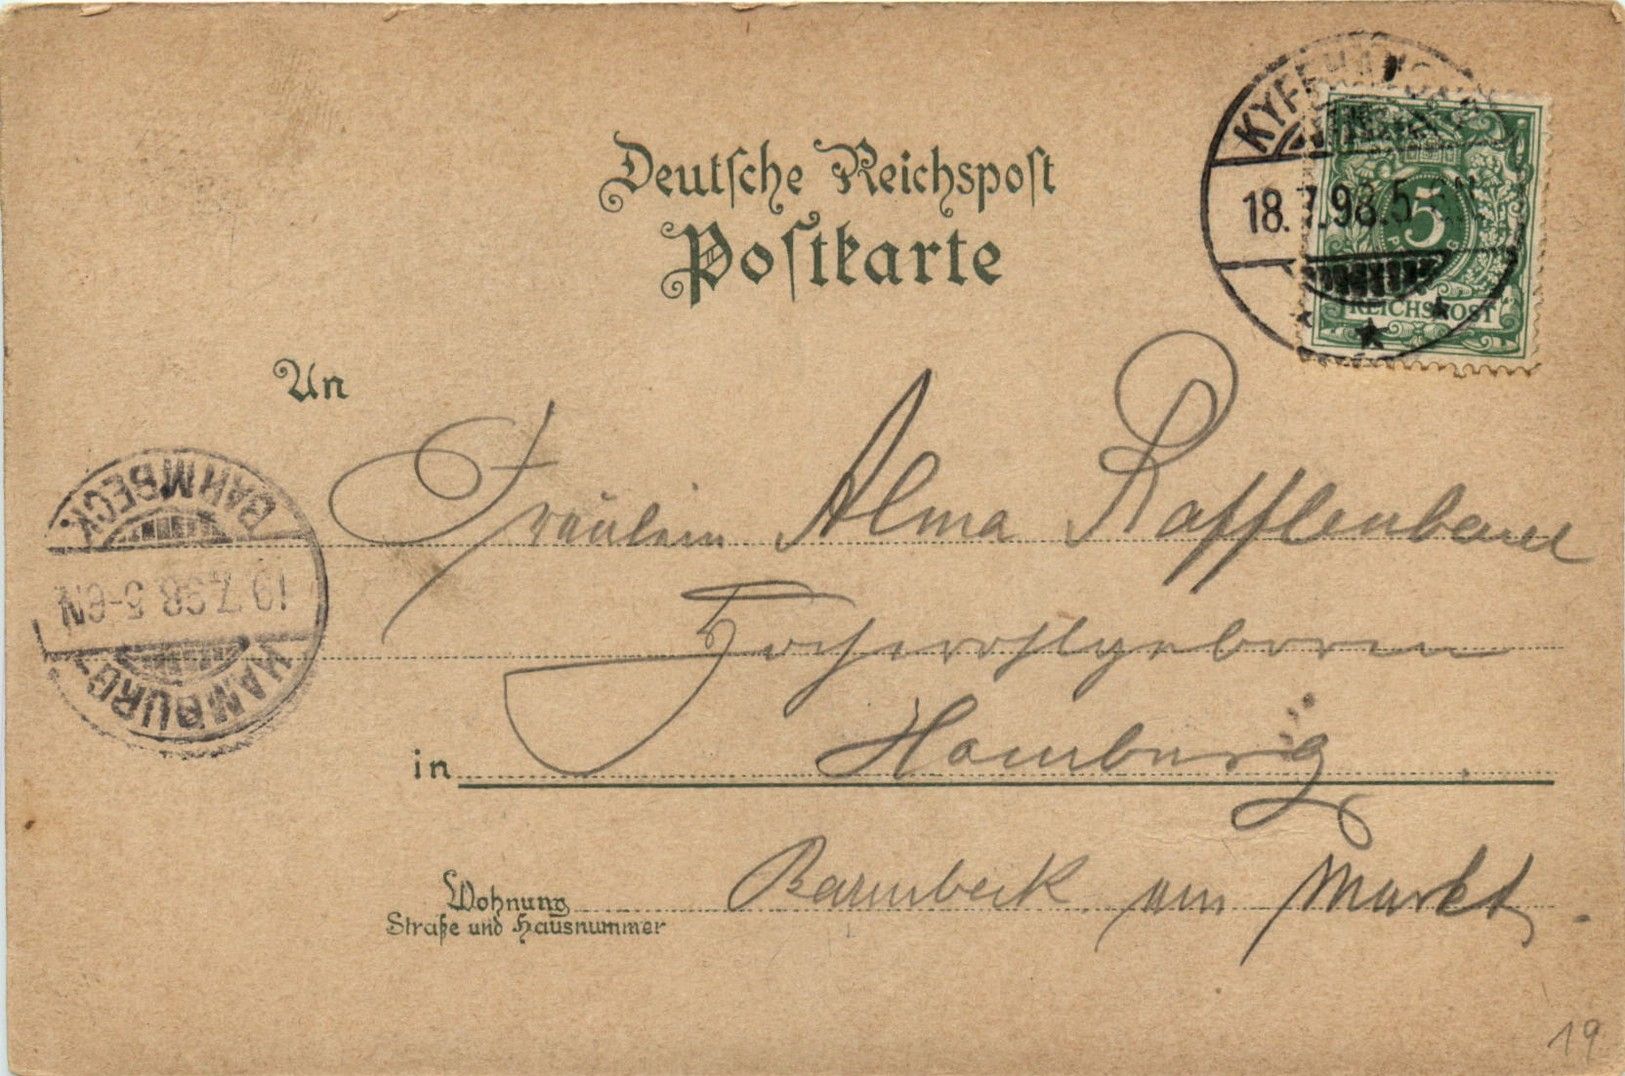 Deutsche Reichspost
Postkarte
18.7.98.5-6N
5
REICHSPOST
An
Fräulein Alma Rafflenbeul
Hochwohlgeboren
in Hamburg
Wohnung
Straße und Hausnummer
Barmbeck am Markt.
HAMBURG
19.7.98.5-6N
BARMBECK.
19